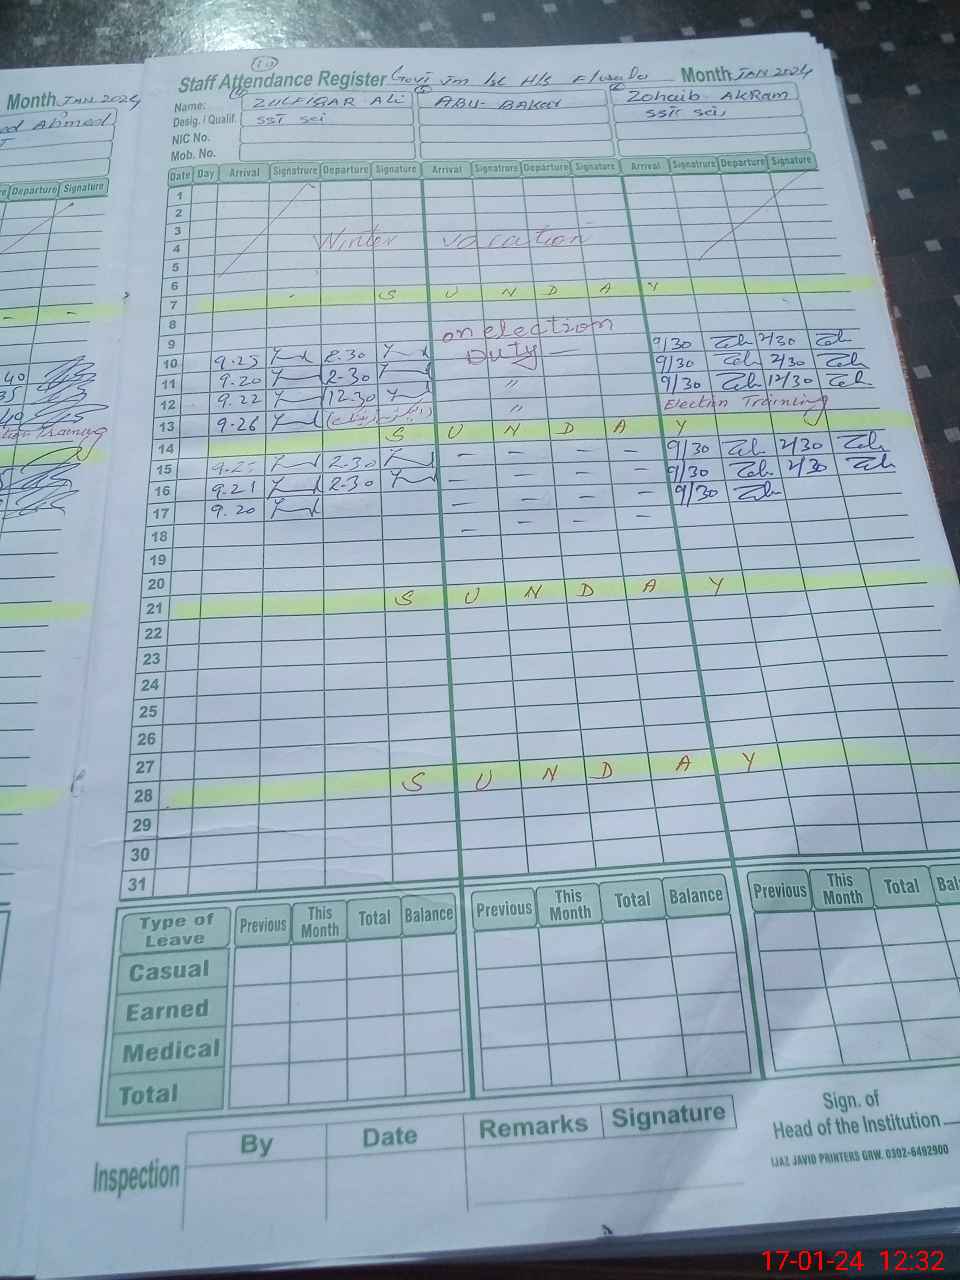 Month JAN 2024
Ahmed
Departure Signature
10
Staff Attendance Register Govt Jm Isl H/s Month JAN 2024
Name: ZULFIQAR ALI ABU-BAKAR Zohaib AKRam
Desig. / Qualif. SST sci SST sci,
NIC No.
Mob. No.
Date Day Arrival Signatrure Departure Signature Arrival Signatrure Departure Signature Arrival Signatrure Departure Signature
1
2
3
4 Winter vacation
5
6
7 S U N D A Y
8
9 on election 9/30 2/30
10 9.25 2.30 Duty — 9/30 2/30
11 9.20 2-30 " 9/30 12/30
12 9.22 12-30 " Election Training
13 9.26
14 S U N D A Y 9/30 2/30
15 2-30 – – – – 9/30 2/30
16 9.21 2-30 – – – – 9/30
17 9.20 – – – –
18 – – – –
19
20
21 S U N D A Y
22
23
24
25
26
27
28 S U N D A Y
29
30
31
Type of Leave Previous This Month Total Balance Previous This Month Total Balance Previous This Month Total Bal
Casual
Earned
Medical
Total
Inspection By Date Remarks Signature
Sign. of
Head of the Institution
IJAZ JAVID PRINTERS GRW. 0302-6492900
17-01-24 12:32